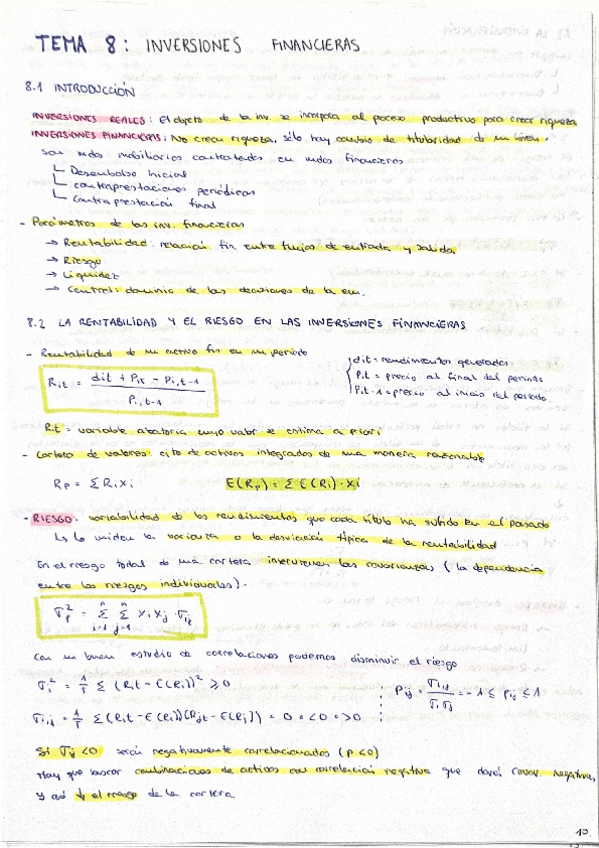 TEMA 8: INVERSIONES FINANCIERAS
8.1 INTRODUCCIÓN
INVERSIONES REALES: El objeto de la inv. se incorpora al proceso productivo para crear riqueza
INVERSIONES FINANCIERAS: No crean riqueza, sólo hay cambio de titularidad de un bien.
son mobiliarios contratados en financieros
Desembolso inicial
contraprestaciones periódicas
Contraprestación final
- Parámetros de las inv. financieras
→ Rentabilidad: relación fin entre flujos de entrada y salida
→ Riesgo
→ Liquidez
→ Control: dominio de las decisiones de la em.
8.2 LA RENTABILIDAD Y EL RIESGO EN LAS INVERSIONES FINANCIERAS
- Rentabilidad de un activo fin en un periodo
Ri,t = (dit + Pit - Pi,t-1) / Pi,t-1
dit = rendimientos generados
Pit = precio al final del periodo
Pit-1 = precio al inicio del periodo.
Rit = variable aleatoria cuyo valor se estima a priori
- Cartera de valores: cjto de activos integrados de una manera razonable
Rp = ΣRiXi E(Rp) = ΣE(Ri)·Xi
- RIESGO: variabilidad de los rendimientos que cada título ha sufrido en el pasado
↳ lo miden la varianza o la desviación típica de la rentabilidad
En el riesgo total de una cartera intervienen las covarianzas (la dependencia
entre los riesgos individuales).
σp² = Σ(i=1..n) Σ(j=1..n) xi xj · σij
Con un buen estudio de correlaciones podemos disminuir el riesgo
σi² = 1/T Σ (Rit - E(Ri))² ≥ 0
ρij = σi,j / σi σj = -1 ≤ ρij ≤ 1
σi,j = 1/T Σ (Rit - E(Ri))(Rjt - E(Rj)) = 0 o <0 o >0
Si σij <0 serán negativamente correlacionados (ρ <0)
Hay que buscar combinaciones de activos con correlación negativa que dará covar. negativa,
y así ↓ el riesgo de la cartera
10